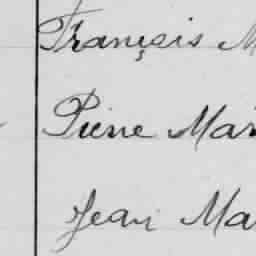 François M
Pierre Mar
Jean Ma